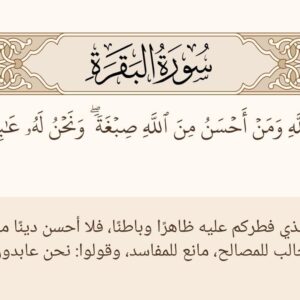 سُورَةُ البَقَرَةِ
وَمَنْ أَحْسَنُ مِنَ ٱللَّهِ صِبْغَةًۖ وَنَحْنُ لَهُۥ
فطركم عليه ظاهرًا وباطنًا، فلا أحسن دينًا
للمصالح، مانع للمفاسد، وقولوا: نحن